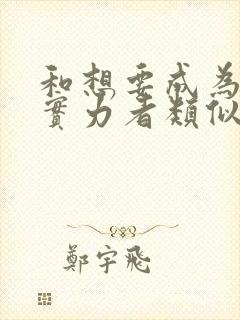 和想要成為
實力者類似
鄭宇飛